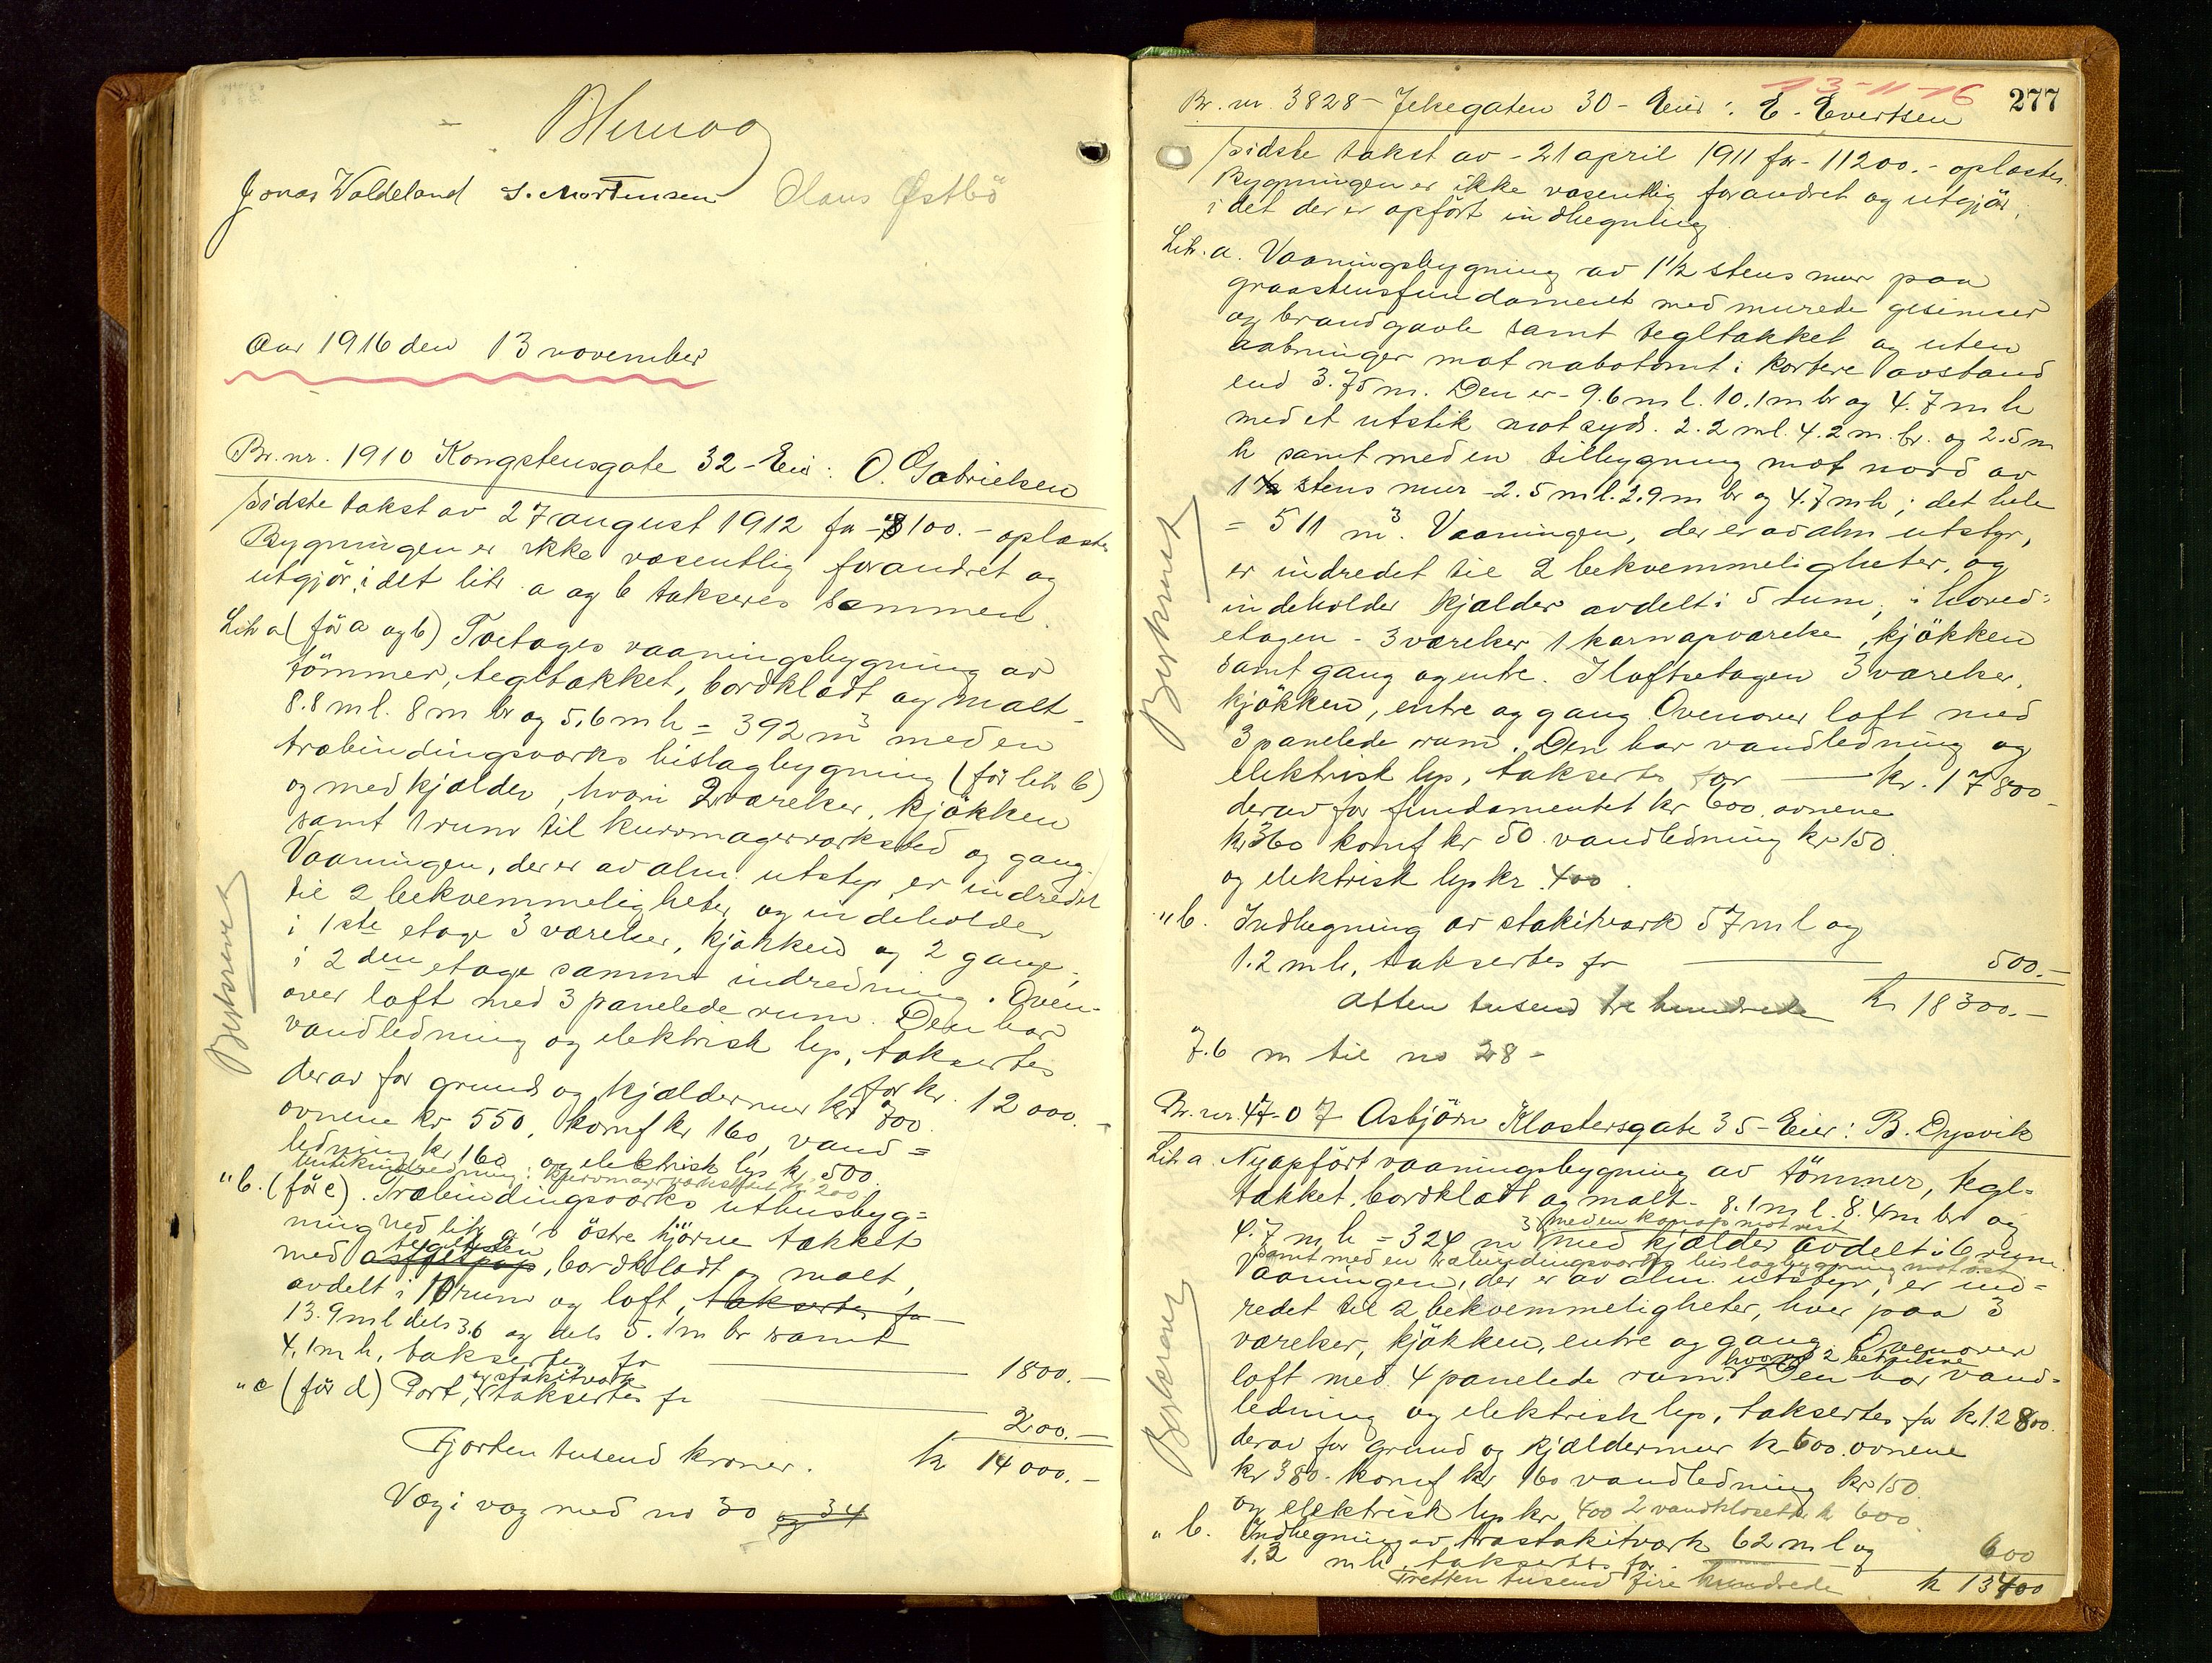 Jonas Valdeland S. Mortensen Olaus Østbö
Aar 1916 den 13 november
Br. nr. 1910 Kongstensgate 32 - Eier: O. Gabrielsen
Sidste takst av 27 august 1912 for 8100.- oplæstes
Bygningen er ikke væsentlig forandret og
utgjör, i det litr a og b takseres sammen.
Litr a (för a og b) Toetages vaaningsbygning av
tömmer, tegltækket, bordklædt og malt -
8.8 m l. 8 m br og 5.6 m h = 392 m³ med en
træbindingsverks bislagbygning (för litr b)
og med kjælder, hvori 2 værelser, kjökken
samt 1 rum til kurvmagerverksted og gang.
Vaaningen, der er av alm. utstyr, er indredet
til 2 bekvemmeligheter, og indeholder
i 1ste etage 3 værelser, kjökken og 2 gange,
i 2den etage samme indredning. Oven-
over loft med 3 panelede rum. Den har
vandledning og elektrisk lys, taksertes
for kr. 12 000.-
derav for grund og kjældermur kr 700.
ovnene kr 550, komf kr 160, vand=
ledning kr 160 og elektrisk lys kr 500.
Butikindredning: kurvmagerverkstedet kr 200
" b. (för c). Træbindingsverks uthusbyg=
ning ved litr a's östre hjörne tækket
med asfaltpap teglsten, bordklædt og malt,
avdelt i 10 rum og loft, taksertes for
13.9 m l dels 3.6 og dels 5.1 m br samt
4.1 m h, taksertes for 1800.-
" c (för d) Port, og stakitverk taksertes for 200.-
Fjorten tusend kroner. kr 14 000.-
Væg i væg med no 30 og 34
Beskrevet
13-11-16
277
Br. nr. 3828 - Jekegaten 30 - Eier: E. Evertsen
Sidste takst av - 21 april 1911 for - 11200.- oplæstes.
Bygningen er ikke væsentlig forandret og utgjör,
i det der er opfört indhegning
Litr. a. Vaaningsbygning av 1½ stens mur paa
graastensfundament med murede gesimser
og brandgavle samt tegltækket og uten
aabninger mot nabotomt i kortere avstand
end 3.75 m. Den er - 9.6 m l. 10.1 m br og 4.7 m h
med et utstik mot syd. 2.2 m l. 4.2 m. br. og 2.5 m
h samt med en tilbygning mot nord av
1½ stens mur - 2.5 m l. 2.9 m br og 4.7 m h; det hele
= 511 m³. Vaaningen, der er av alm utstyr,
er indredet til 2 bekvemmeligheter, og
indeholder kjælder avdelt i 5 rum, i hoved=
etagen - 3 værelser 1 karnapværelse, kjökken
samt gang og entre. I loftsetagen 3 værelser,
kjökken, entre og gang. Ovenover loft med
3 panelede rum. Den har vandledning og
elektrisk lys, taksertes for kr. 17800.-
derav for fundamentet kr 600, ovnene
kr 360 komf kr 50. vandledning kr 150.
og elektrisk lys kr. 400.
" b. Indhegning av stakitverk 57 m l og
1.2 m h, taksertes for 500.-
Atten tusend tre hundrede kr 18300.-
7.6 m til no 28 -
Beskrevet
Br. nr. 47-07 Asbjörn Klostersgate 35 - Eier: B. Dysvik
Litr a. Nyopfört vaaningsbygning av tömmer, tegl=
tækket, bordklædt og malt - 8.1 m l. 8.4 m br og
4.7 m h = 324 m³ med en karnap mot vest med kjælder avdelt i 6 rum.
samt med en træbindingsverks bislagbygning mot öst
Vaaningen, der er av alm. utstyr, er ind=
redet til 2 bekvemmeligheter, hver paa 3
værelser, kjökken, entre og gang. Ovenover
loft med 4 panelede rum, Den har vand=
ledning og elektrisk lys, taksertes for kr 12800.
derav for grund og kjældermur kr 600. ovnene
kr 380 - komf kr 160 vandledning kr 150.
og elektrisk lys kr 400 2 vandklosetter kr 600.
" b. Indhegning av træstakitverk 62 m l og
1.2 m h, taksertes for 600
Tretten tusend fire hundrede kr 13400
Beskrevet